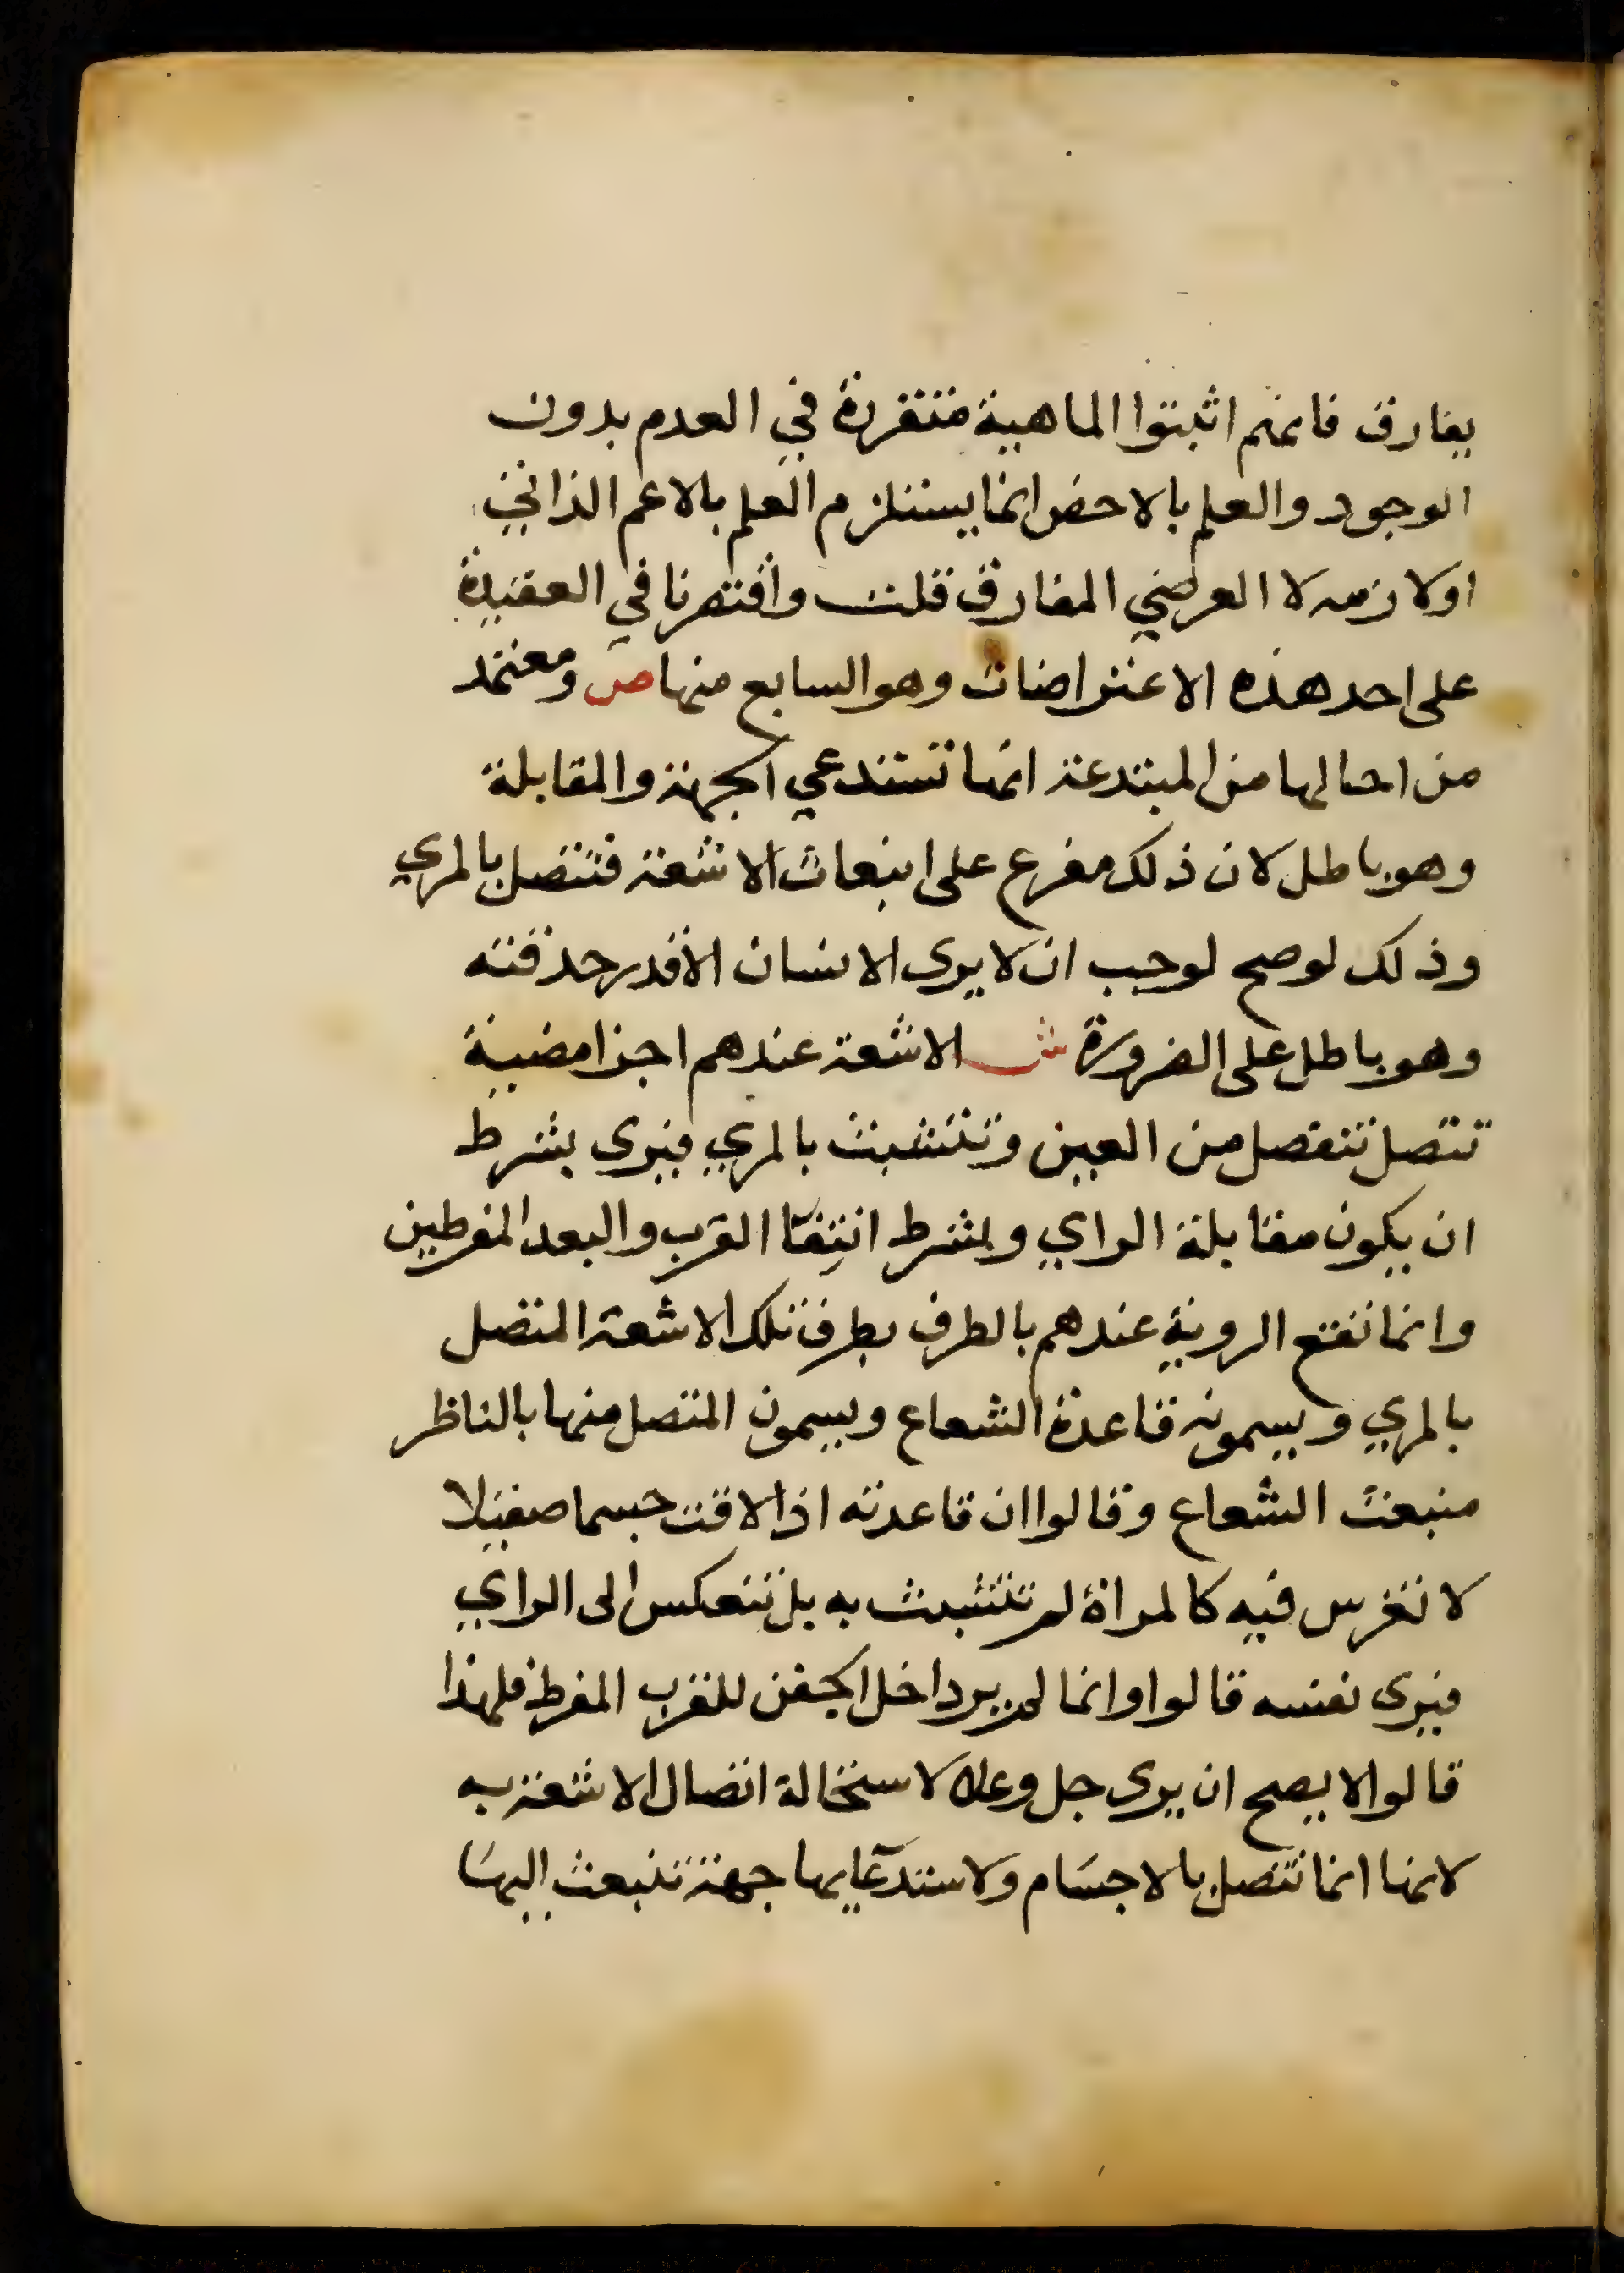 يفارق فانهم اثبتوا الماهية متقررة في العدم بدون
الوجود والعلم بالاخص انما يستلزم العلم بالاعم الذاتي
او لازمه لا العرضي المفارق قلت واقتصرنا في العقيدة
على احد هذه الاعتراضات وهو السابع منها ص ومعتمد
من احالها من المبتدعة انها تستدعي الجهة والمقابلة
وهو باطل لان ذلك مفرع على انبعاث الاشعة فتتصل بالمري
وذلك لو صح لوجب ان لا يرى الانسان الا قدر حدقته
وهو باطل على الضرورة ش الاشعة عندهم اجزا مضية
تتصل تنفصل من العين وتتشبث بالمري فيرى بشرط
ان يكون مقابلة الراي وبشرط انتفا القرب والبعد المفرطين
وانما تقع الروية عندهم بالطرف بطرف تلك الاشعة المتصل
بالمري ويسمونه قاعدة الشعاع ويسمون المتصل منها بالناظر
منبعث الشعاع وقالوا ان قاعدته اذا لاقت جسما صقيلا
لا تغرس فيه كالمراة لم تتشبث به بل تنعكس الى الراي
فيرى نفسه قالوا وانما لم ير داخل الجفن للقرب المفرط فلهذا
قالوا لا يصح ان يرى جل وعلا لاستحالة اتصال الاشعة به
لانها انما تتصل بالاجسام ولاستدعايها جهة تنبعث اليها